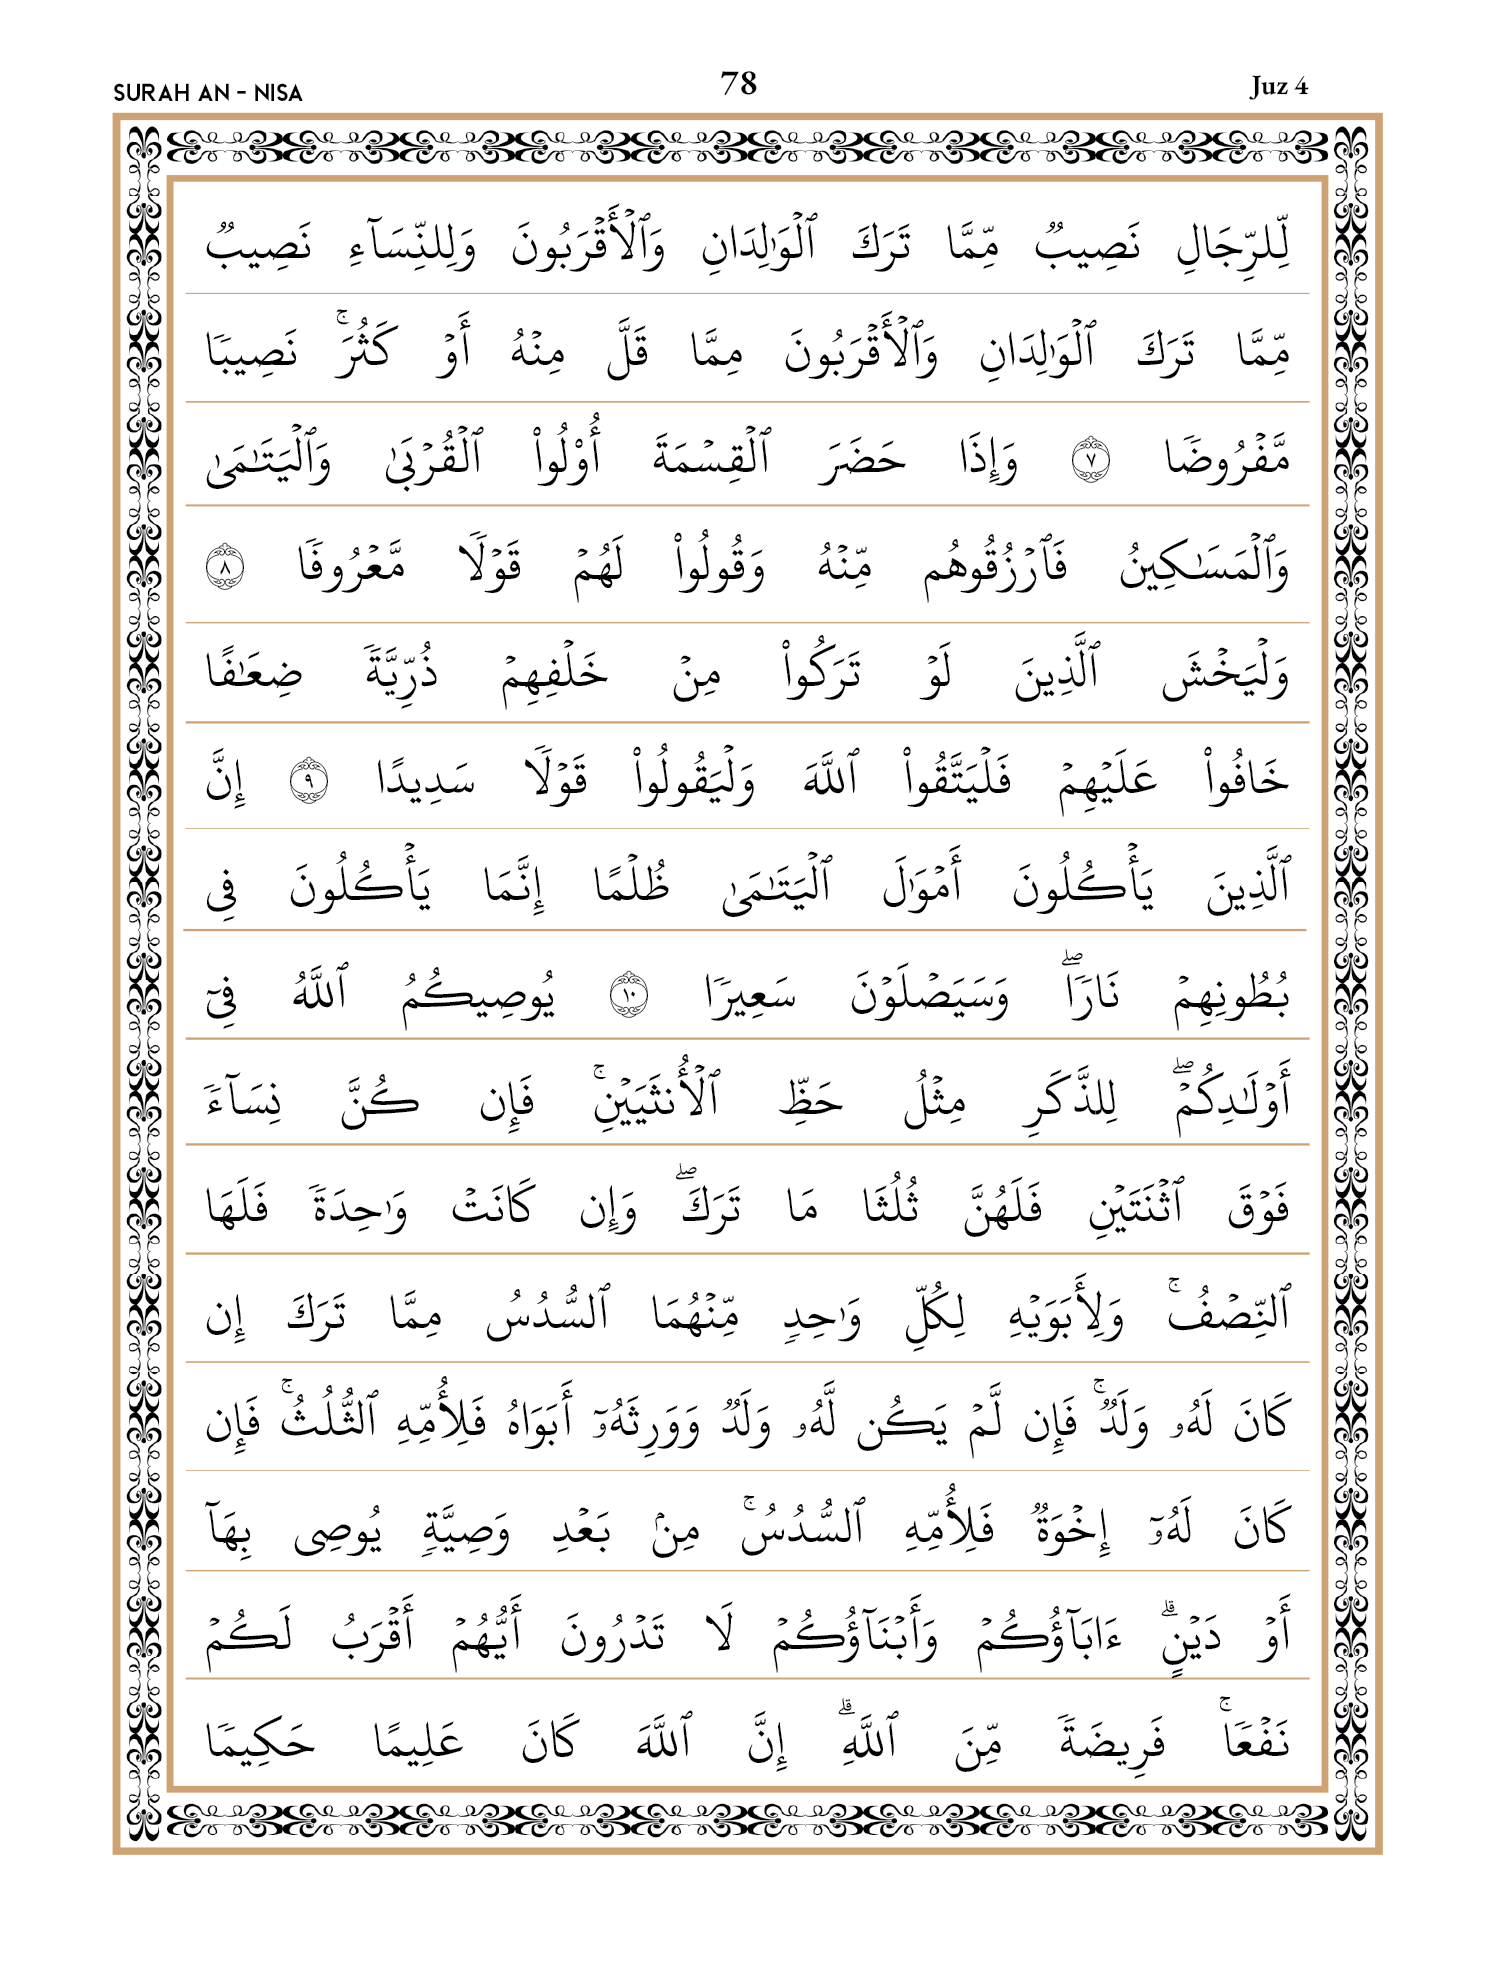 SURAH AN - NISA
78
Juz 4
لِّلرِّجَالِ نَصِيبٌ مِّمَّا تَرَكَ ٱلْوَٰلِدَانِ وَٱلْأَقْرَبُونَ وَلِلنِّسَآءِ نَصِيبٌ
مِّمَّا تَرَكَ ٱلْوَٰلِدَانِ وَٱلْأَقْرَبُونَ مِمَّا قَلَّ مِنْهُ أَوْ كَثُرَ ۚ نَصِيبًا
مَّفْرُوضًا ٧ وَإِذَا حَضَرَ ٱلْقِسْمَةَ أُو۟لُوا۟ ٱلْقُرْبَىٰ وَٱلْيَتَـٰمَىٰ
وَٱلْمَسَـٰكِينُ فَٱرْزُقُوهُم مِّنْهُ وَقُولُوا۟ لَهُمْ قَوْلًا مَّعْرُوفًا ٨
وَلْيَخْشَ ٱلَّذِينَ لَوْ تَرَكُوا۟ مِنْ خَلْفِهِمْ ذُرِّيَّةً ضِعَـٰفًا
خَافُوا۟ عَلَيْهِمْ فَلْيَتَّقُوا۟ ٱللَّهَ وَلْيَقُولُوا۟ قَوْلًا سَدِيدًا ٩ إِنَّ
ٱلَّذِينَ يَأْكُلُونَ أَمْوَٰلَ ٱلْيَتَـٰمَىٰ ظُلْمًا إِنَّمَا يَأْكُلُونَ فِى
بُطُونِهِمْ نَارًا ۖ وَسَيَصْلَوْنَ سَعِيرًا ١٠ يُوصِيكُمُ ٱللَّهُ فِىٓ
أَوْلَـٰدِكُمْ ۖ لِلذَّكَرِ مِثْلُ حَظِّ ٱلْأُنثَيَيْنِ ۚ فَإِن كُنَّ نِسَآءً
فَوْقَ ٱثْنَتَيْنِ فَلَهُنَّ ثُلُثَا مَا تَرَكَ ۖ وَإِن كَانَتْ وَٰحِدَةً فَلَهَا
ٱلنِّصْفُ ۚ وَلِأَبَوَيْهِ لِكُلِّ وَٰحِدٍ مِّنْهُمَا ٱلسُّدُسُ مِمَّا تَرَكَ إِن
كَانَ لَهُۥ وَلَدٌ ۚ فَإِن لَّمْ يَكُن لَّهُۥ وَلَدٌ وَوَرِثَهُۥٓ أَبَوَاهُ فَلِأُمِّهِ ٱلثُّلُثُ ۚ فَإِن
كَانَ لَهُۥٓ إِخْوَةٌ فَلِأُمِّهِ ٱلسُّدُسُ ۚ مِنۢ بَعْدِ وَصِيَّةٍ يُوصِى بِهَآ
أَوْ دَيْنٍ ۗ ءَابَآؤُكُمْ وَأَبْنَآؤُكُمْ لَا تَدْرُونَ أَيُّهُمْ أَقْرَبُ لَكُمْ
نَفْعًا ۚ فَرِيضَةً مِّنَ ٱللَّهِ ۗ إِنَّ ٱللَّهَ كَانَ عَلِيمًا حَكِيمًا